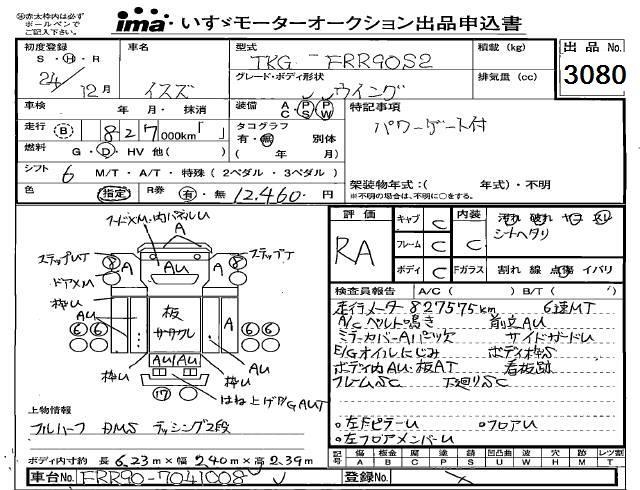 ※赤太枠内は必ず
ボールペンで
ご記入下さい。
ima いすゞモーターオークション出品申込書
初度登録
S・H・R
24/12月
車名
イスズ
型式
TKG-FRR90S2
グレード・ボディ形状
ウイング
積載 (kg)
排気量 (cc)
出品No.
3080
車検 年 月・抹消
走行 (B) 827,000km「 」
燃料 G・D・HV 他( )
シフト 6 M/T・A/T・特殊(2ペダル・3ペダル)
色 (指定) R券 有・無 12,460円
装備 A C P S P W
タコグラフ
有・無 別体
( 年 月)
特記事項
パワーゲート付
架装物年式:( 年式)・不明
※不明の場合は、不明に○をする。
フードXM・内パネルU
A
ステップUT
ドアXM
枠U
AU
A
AU
A
ステップT
板
ササクレ
A
枠U
AU
AU
AU
枠U
はね上ゲUGAUT
8
8
6 6
6 6
17
上物情報
フルハーフ DMS デッシング2段
ボディ内寸約 長 6.23m×幅 2.40m×高 2.39m
評価
RA
キャブ C
フレーム C
ボディ C
内装 C
Fガラス
汚れ 破れ ヤコ スレ
シートヘタリ
割れ 線 点傷 イバリ
検査員報告 A/C( ) B/T( )
走行メーター827575km 6速MT
A/Cベルト鳴き 前立AU
ミラーカバーAパツ欠 サイドガードU
E/Gオイルにじみ ボディ枠S
ボディ内AU・板AT 看板跡
フレームSC 下廻りSC
○左ドピラーU ○フロアU
○左フロアメンバーU
記号 傷A 板金B 腐C 塗P 錆S 凹凸曲U 波W 穴H 跡M レツ割T
車台No. FRR90-7041008
登録No.